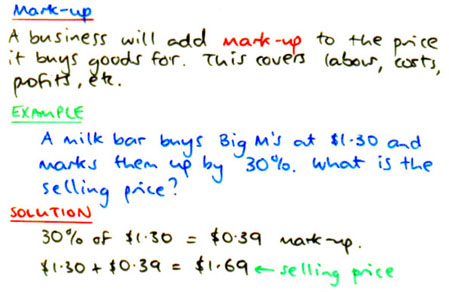 Mark-up
A business will add mark-up to the price
it buys goods for. This covers labour, costs,
profits, etc.
EXAMPLE
A milk bar buys Big M's at $1.30 and
marks them up by 30%. What is the
selling price?
SOLUTION
30% of $1.30 = $0.39 mark-up.
$1.30 + $0.39 = $1.69 ← selling price